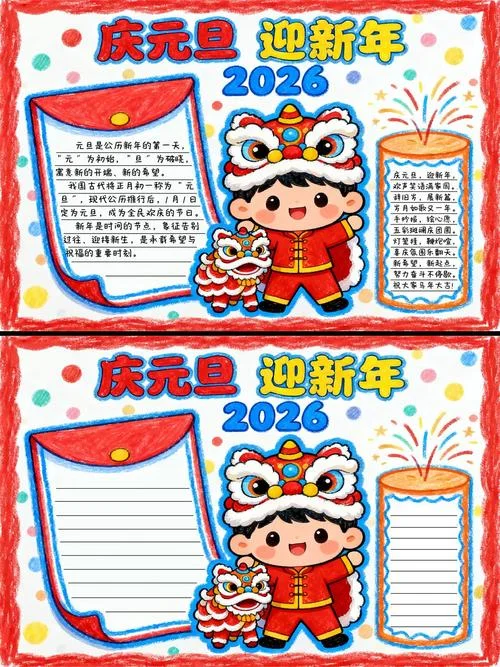 庆元旦 迎新年
2026
元旦是公历新年的第一天，
“元”为初始，“旦”为破晓，
寓意新的开端、新的希望。
我国古代将正月初一称为“元
旦”，现代公历推行后，1月1日
定为元旦，成为全民欢庆的节日。
新年是时间的节点，象征告别
过往、迎接新生，是承载希望与
祝福的重要时刻。
庆元旦，迎新年，
欢声笑语满家园。
辞旧岁，展新篇，
岁月如歌又一年。
手抄报，绘心愿，
五彩斑斓庆团圆。
灯笼挂，鞭炮喧，
喜庆氛围乐翻天。
新希望，新起点，
努力奋斗不停歇。
祝大家马年大吉！
庆元旦 迎新年
2026